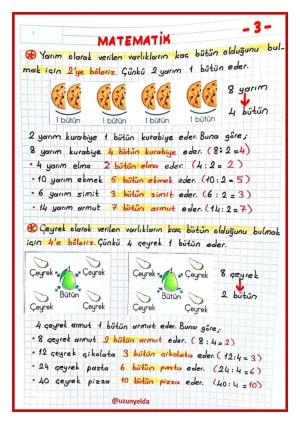 - 3 -
MATEMATİK
Yarım olarak verilen varlıkların kaç bütün olduğunu bul-
mak için 2'ye böleriz. Çünkü 2 yarım 1 bütün eder.
8 yarım
4 bütün
1 bütün 1 bütün 1 bütün 1 bütün
2 yarım kurabiye 1 bütün kurabiye eder. Buna göre;
8 yarım kurabiye 4 bütün kurabiye eder. (8:2=4)
• 4 yarım elma 2 bütün elma eder. (4:2=2)
• 10 yarım ekmek 5 bütün ekmek eder. (10:2=5)
• 6 yarım simit 3 bütün simit eder. (6:2=3)
• 14 yarım armut 7 bütün armut eder. (14:2=7)
Çeyrek olarak verilen varlıkların kaç bütün olduğunu bulmak
için 4'e böleriz. Çünkü 4 çeyrek 1 bütün eder.
Çeyrek Çeyrek Çeyrek Çeyrek
8 çeyrek
Bütün Bütün
2 bütün
Çeyrek Çeyrek Çeyrek Çeyrek
4 çeyrek armut 1 bütün armut eder. Buna göre;
• 8 çeyrek armut 2 bütün armut eder. (8:4=2)
• 12 çeyrek çikolata 3 bütün çikolata eder. (12:4=3)
• 24 çeyrek pasta 6 bütün pasta eder. (24:4=6)
• 40 çeyrek pizza 10 bütün pizza eder. (40:4=10)
@uzunyelda